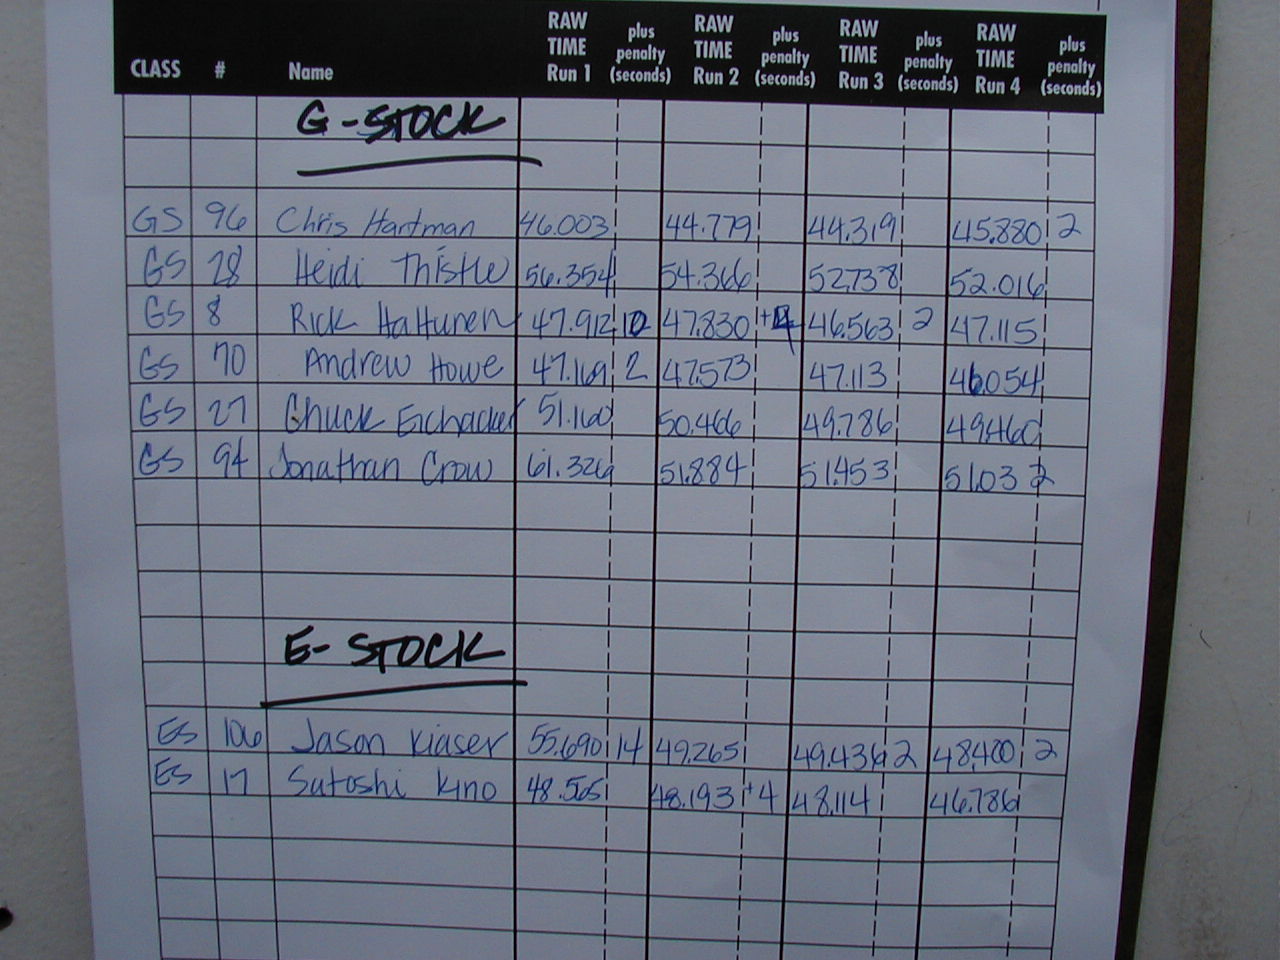 CLASS # Name RAW TIME Run 1 plus penalty (seconds) RAW TIME Run 2 plus penalty (seconds) RAW TIME Run 3 plus penalty (seconds) RAW TIME Run 4 plus penalty (seconds)
G-STOCK
GS 96 Chris Hartman 46.003 44.779 44.319 45.880 2
GS 28 Heidi Thistle 56.354 54.366 52.738 52.016
GS 8 Rick 47.912 10 47.830 +4 46.563 2 47.115
GS 70 Andrew Howe 47.169 2 47.573 47.113 46.054
GS 27 Chuck Eichacker 51.160 50.466 49.786 49.460
GS 94 Jonathan Crow 61.326 51.884 51.453 51.032
E-STOCK
ES 106 Jason Kiaser 55.690 14 49.265 49.436 2 48.400 2
ES 17 Satoshi Kino 48.565 48.193 +4 48.114 46.786